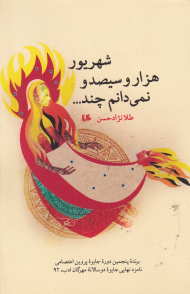 شهریور
هزار و سیصد و
نمی‌دانم چند...
طلا نژادحسن
برندهٔ پنجمین دورهٔ جایزهٔ پروین اعتصامی
نامزد نهایی جایزهٔ دوسالانهٔ مهرگان ادب، ۹۲